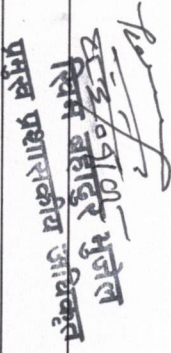 खिम बहादुर भुजेल
प्रमुख प्रशासकीय अधिकृत